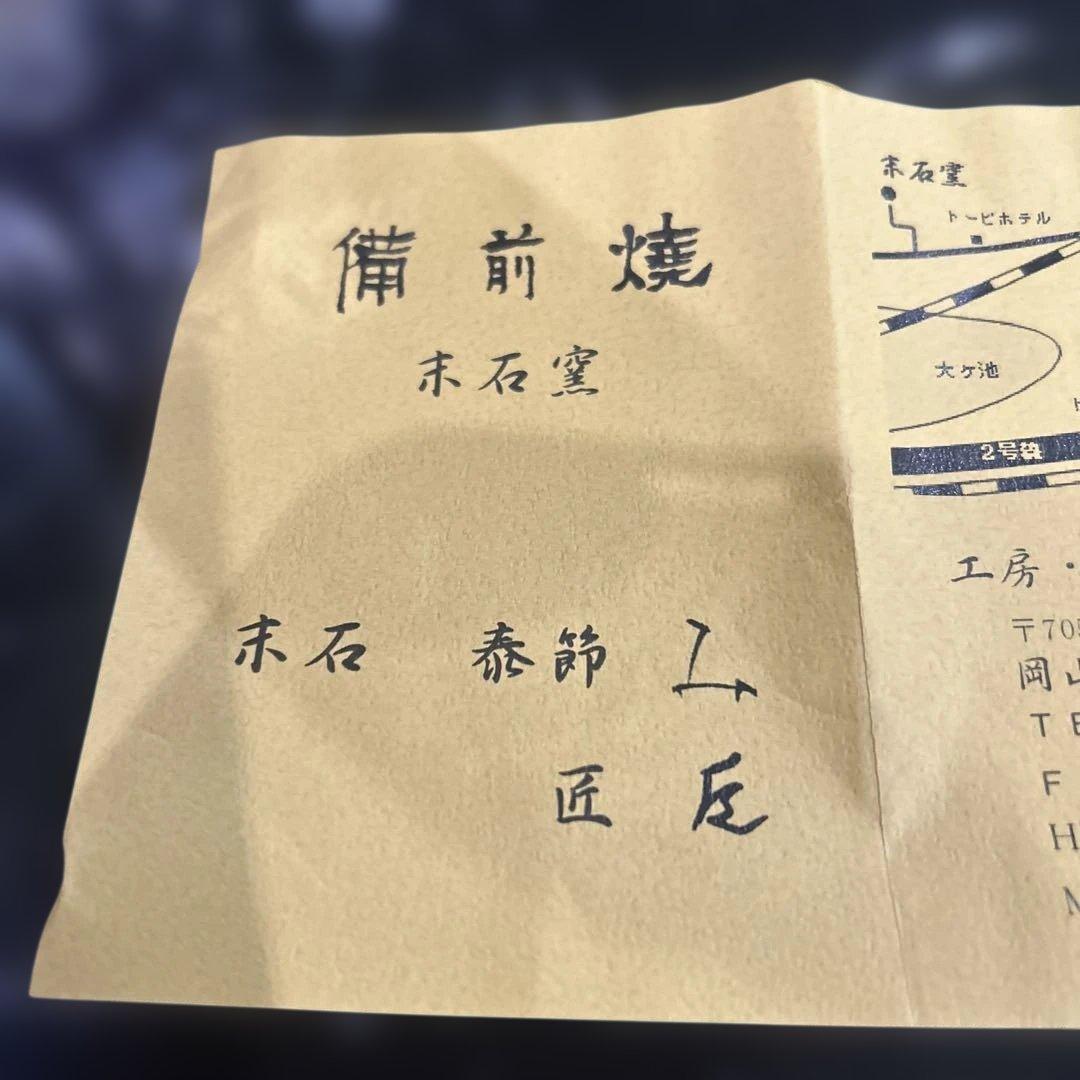 備前燒
末石窯
末石 泰節
匠
末石窯
トーピホテル
大ケ池
2号線
工房・
〒705
岡山
TE
F
H
M